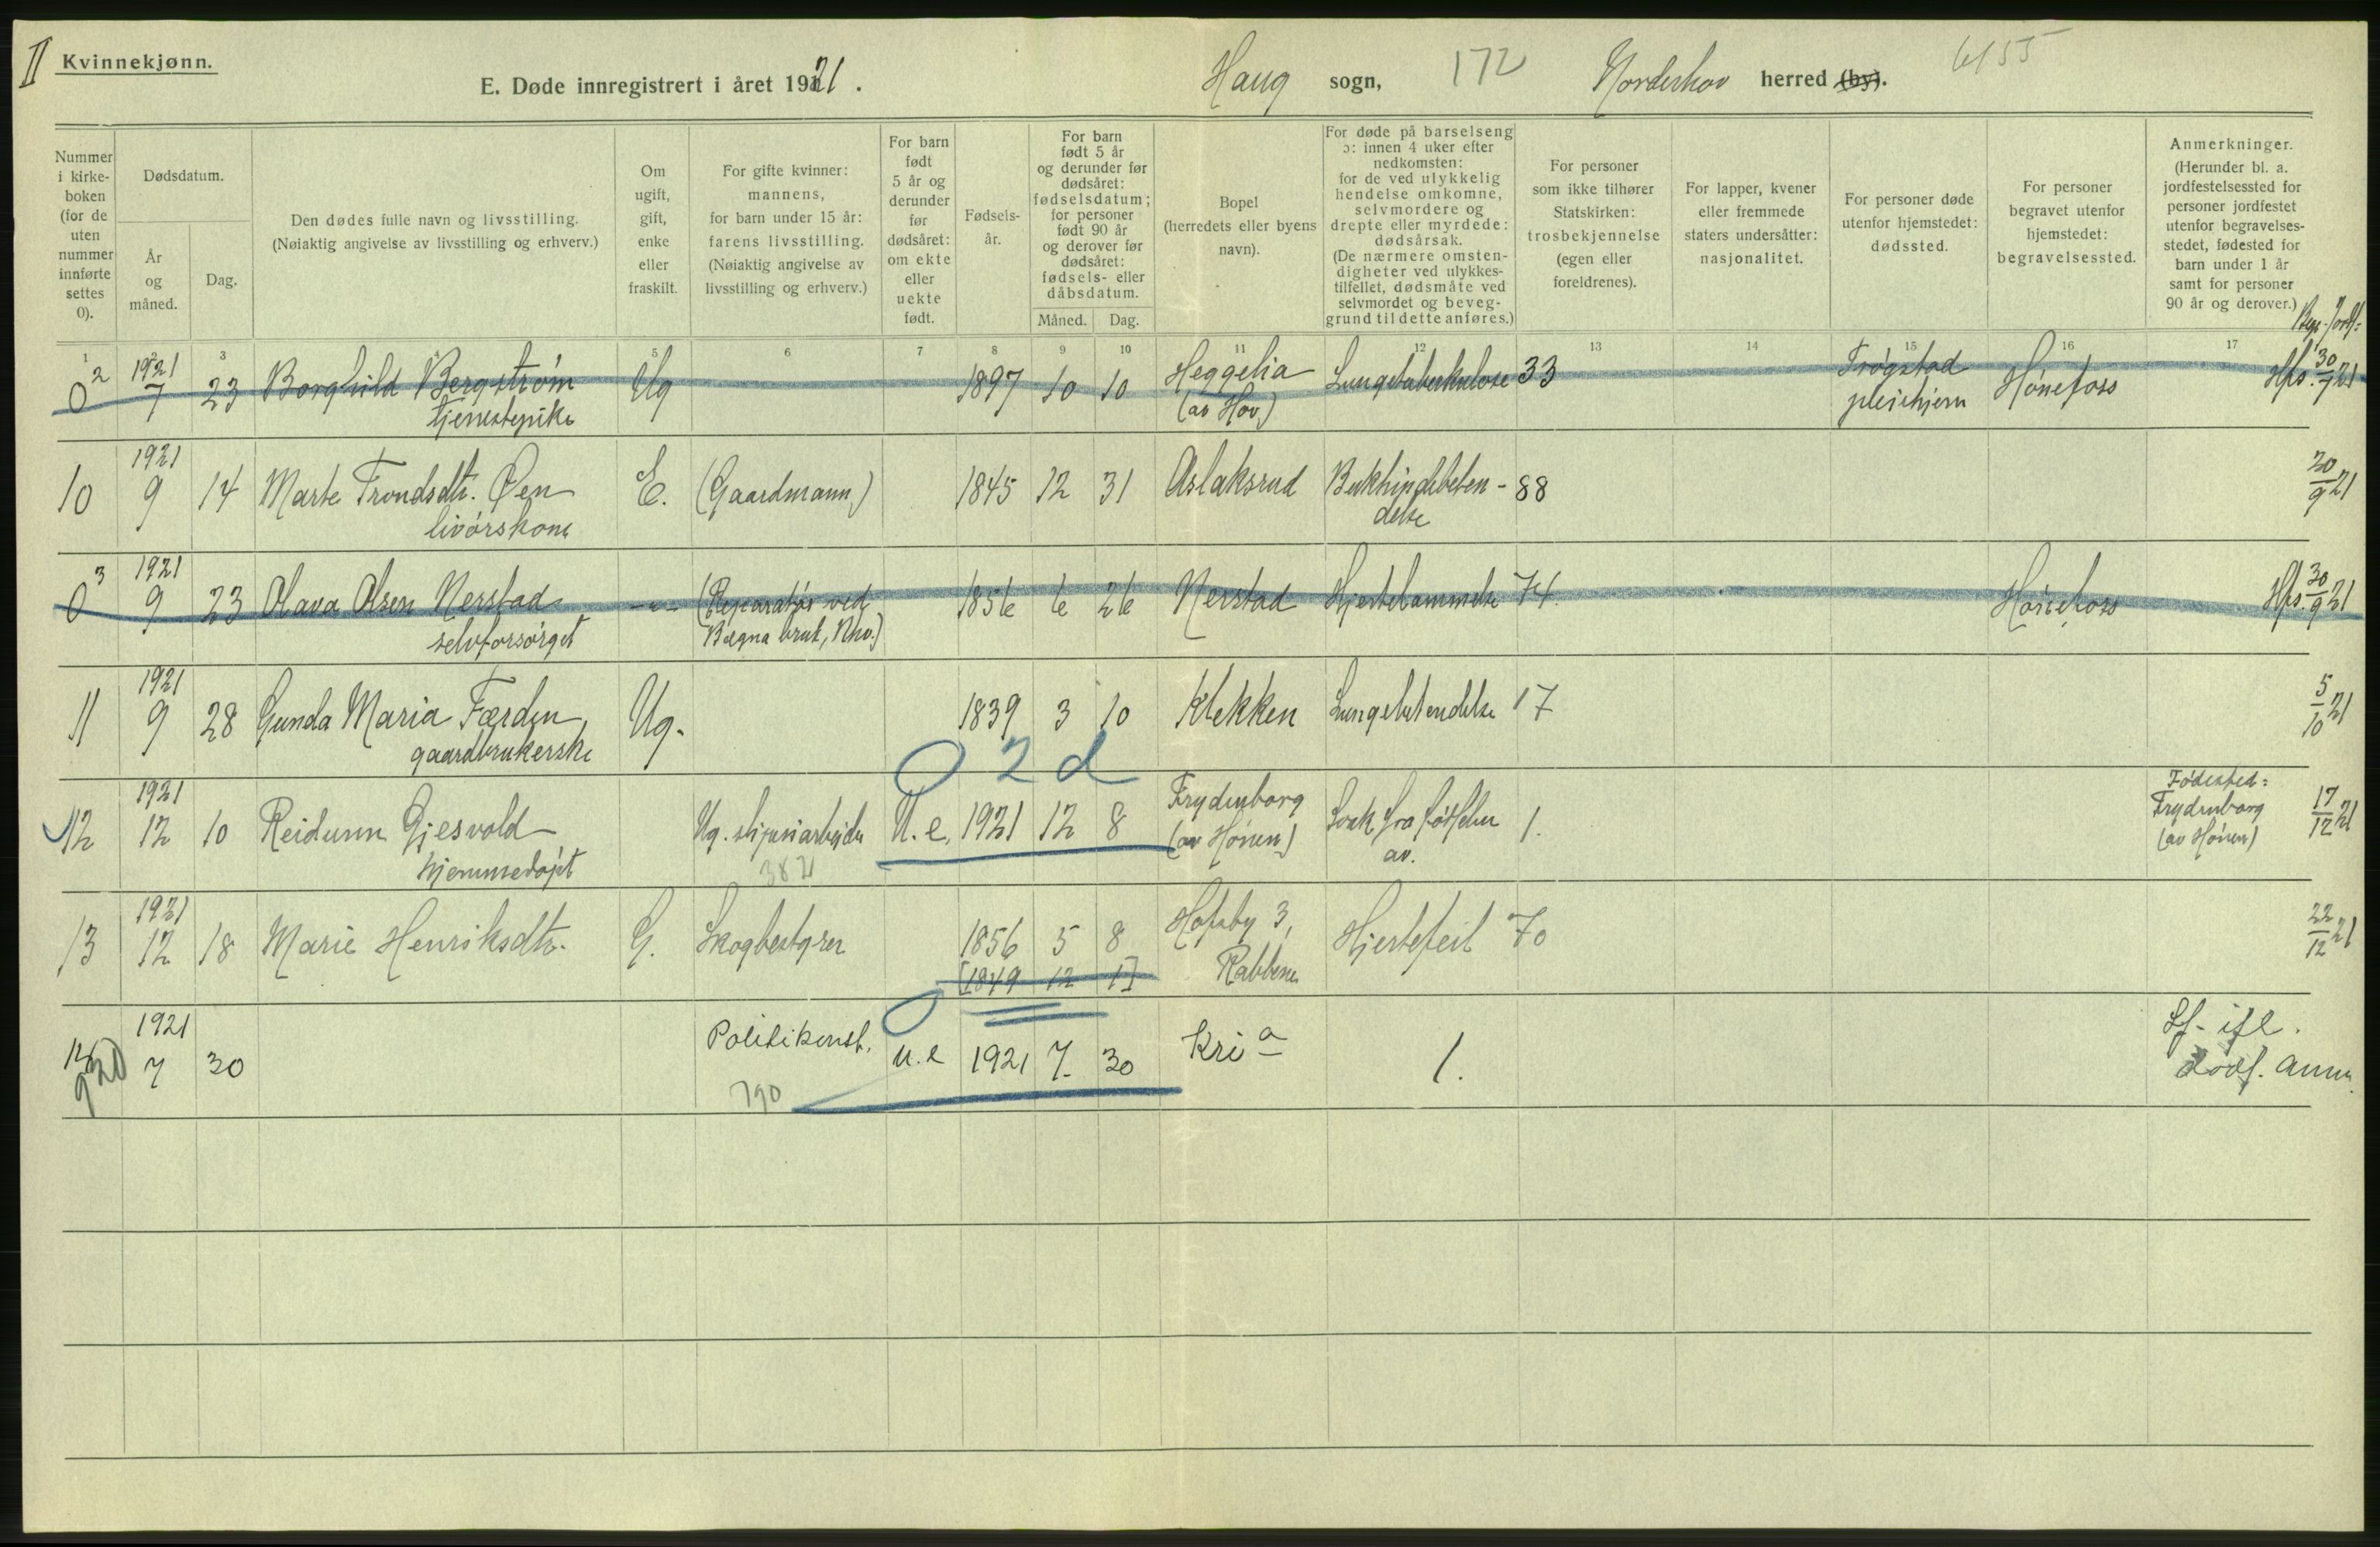 II Kvinnekjønn.
E. Døde innregistrert i året 1921.
Haug sogn, 172 Norderhov herred (by). 6155
Nummer i kirkeboken (for de uten nummer innførte settes 0).
Dødsdatum.
År og måned.
Dag.
Den dødes fulle navn og livsstilling.
(Nøiaktig angivelse av livsstilling og erhverv.)
Om ugift, gift, enke eller fraskilt.
For gifte kvinner: mannens, for barn under 15 år: farens livsstilling. (Nøiaktig angivelse av livsstilling og erhverv.)
For barn født 5 år og derunder før dødsåret: om ekte eller uekte født.
Fødselsår.
For barn født 5 år og derunder før dødsåret: fødselsdatum; for personer født 90 år og derover før dødsåret: fødsels- eller dåbsdatum.
Måned. Dag.
Bopel (herredets eller byens navn).
For døde på barselseng ɔ: innen 4 uker efter nedkomsten: for de ved ulykkelig hendelse omkomne, selvmordere og drepte eller myrdede: dødsårsak. (De nærmere omstendigheter ved ulykkestilfellet, dødsmåte ved selvmordet og beveggrund til dette anføres.)
For personer som ikke tilhører Statskirken: trosbekjennelse (egen eller foreldrenes).
For lapper, kvener eller fremmede staters undersåtter: nasjonalitet.
For personer døde utenfor hjemstedet: dødssted.
For personer begravet utenfor hjemstedet: begravelsessted.
Anmerkninger. (Herunder bl. a. jordfestelsessted for personer jordfestet utenfor begravelsesstedet, fødested for barn under 1 år samt for personer 90 år og derover.)
1 2 3 5 6 7 8 9 10 11 12 13 14 15 16 17
0 2 1921 7 23 Borghild Bergstrøm Ug 1897 10 10 Heggelia Lungetuberkulose 33 Frøgstad Hönefoss Hfs. 30/7 21
tjenestepike (av Hov) pleiehjem
10 1921 9 14 Marte Trondsdtr. Øen E. (Gaardmann) 1845 12 31 Aslaksrud Bukhindebeten- 88 20/9 21
livörskone delse
0 3 1921 9 23 Olava Olsen Nerstad -"- (Reparatør ved 1856 6 26 Nerstad Hjertelammelse 74 Hönefoss Hfs. 30/9 21
selvforsørget Bægna bruk, Nhv.)
11 1921 9 28 Gunda Maria Færden, Ug. 1839 3 10 Klekken Lungebetendelse 17 5/10 21
gaardbrukerske
0 2 d
12 1921 12 10 Reidunn Gjesvold Ug. sliperiarbeider U.e. 1921 12 8 Frydenborg Svak fra fötselen 1. Födested: 17/12 21
hjemmedöpt 382 (av Hönen) av. Frydenborg
(av Hönen)
13 1921 12 18 Marie Henriksdtr. G. Skogbestyrer 1856 5 8 Hofsby 3, Hjertefeil 70 22/12 21
[1849 12 1] Rabben
1921 7 30 Politikonst. u.e 1921 7 30 Kria 1. Lf. ifl.
920 790 dødf. anm.